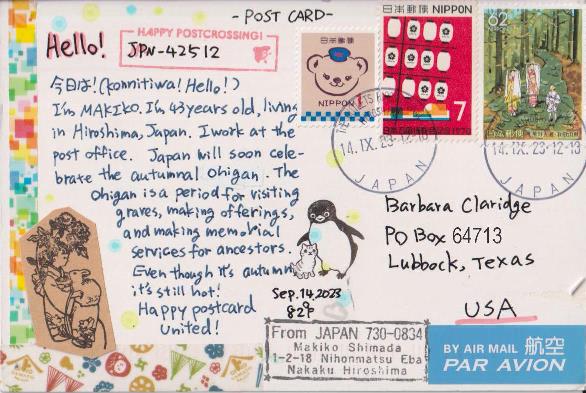 - POST CARD -
Hello!
HAPPY POSTCROSSING!
JPN-42512
今日は!(konnitiwa! Hello!)
I'm MAKIKO. I'm 43 years old, living
in Hiroshima, Japan. I work at the
post office. Japan will soon cele-
brate the autumnal Ohigan. The
Ohigan is a period for visiting
graves, making offerings,
and making memorial
services for ancestors.
Even though it's autumn
it's still hot!
Happy postcard
United!
Sep. 14, 2023
82°F
日本郵便
NIPPON
日本郵便 NIPPON
7
1970
82
日本郵便
14. IX. 23-12-18
JAPAN
14. IX. 23-12-13
JAPAN
Barbara Claridge
PO Box 64713
Lubbock, Texas
USA
From JAPAN 730-0834
Makiko Shimada
1-2-18 Nihonmatsu Eba
Nakaku Hiroshima
BY AIR MAIL 航空
PAR AVION